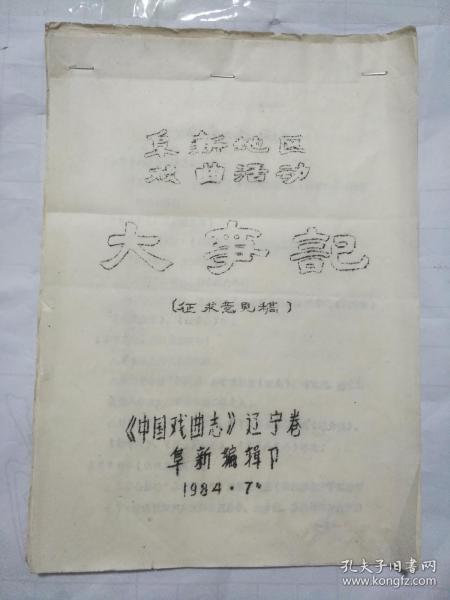 阜新地区
戏曲活动
大事記
（征求意见稿）
《中国戏曲志》辽宁卷
阜新编辑卩
1984.7.
孔夫子旧书网
www.kongfz.com